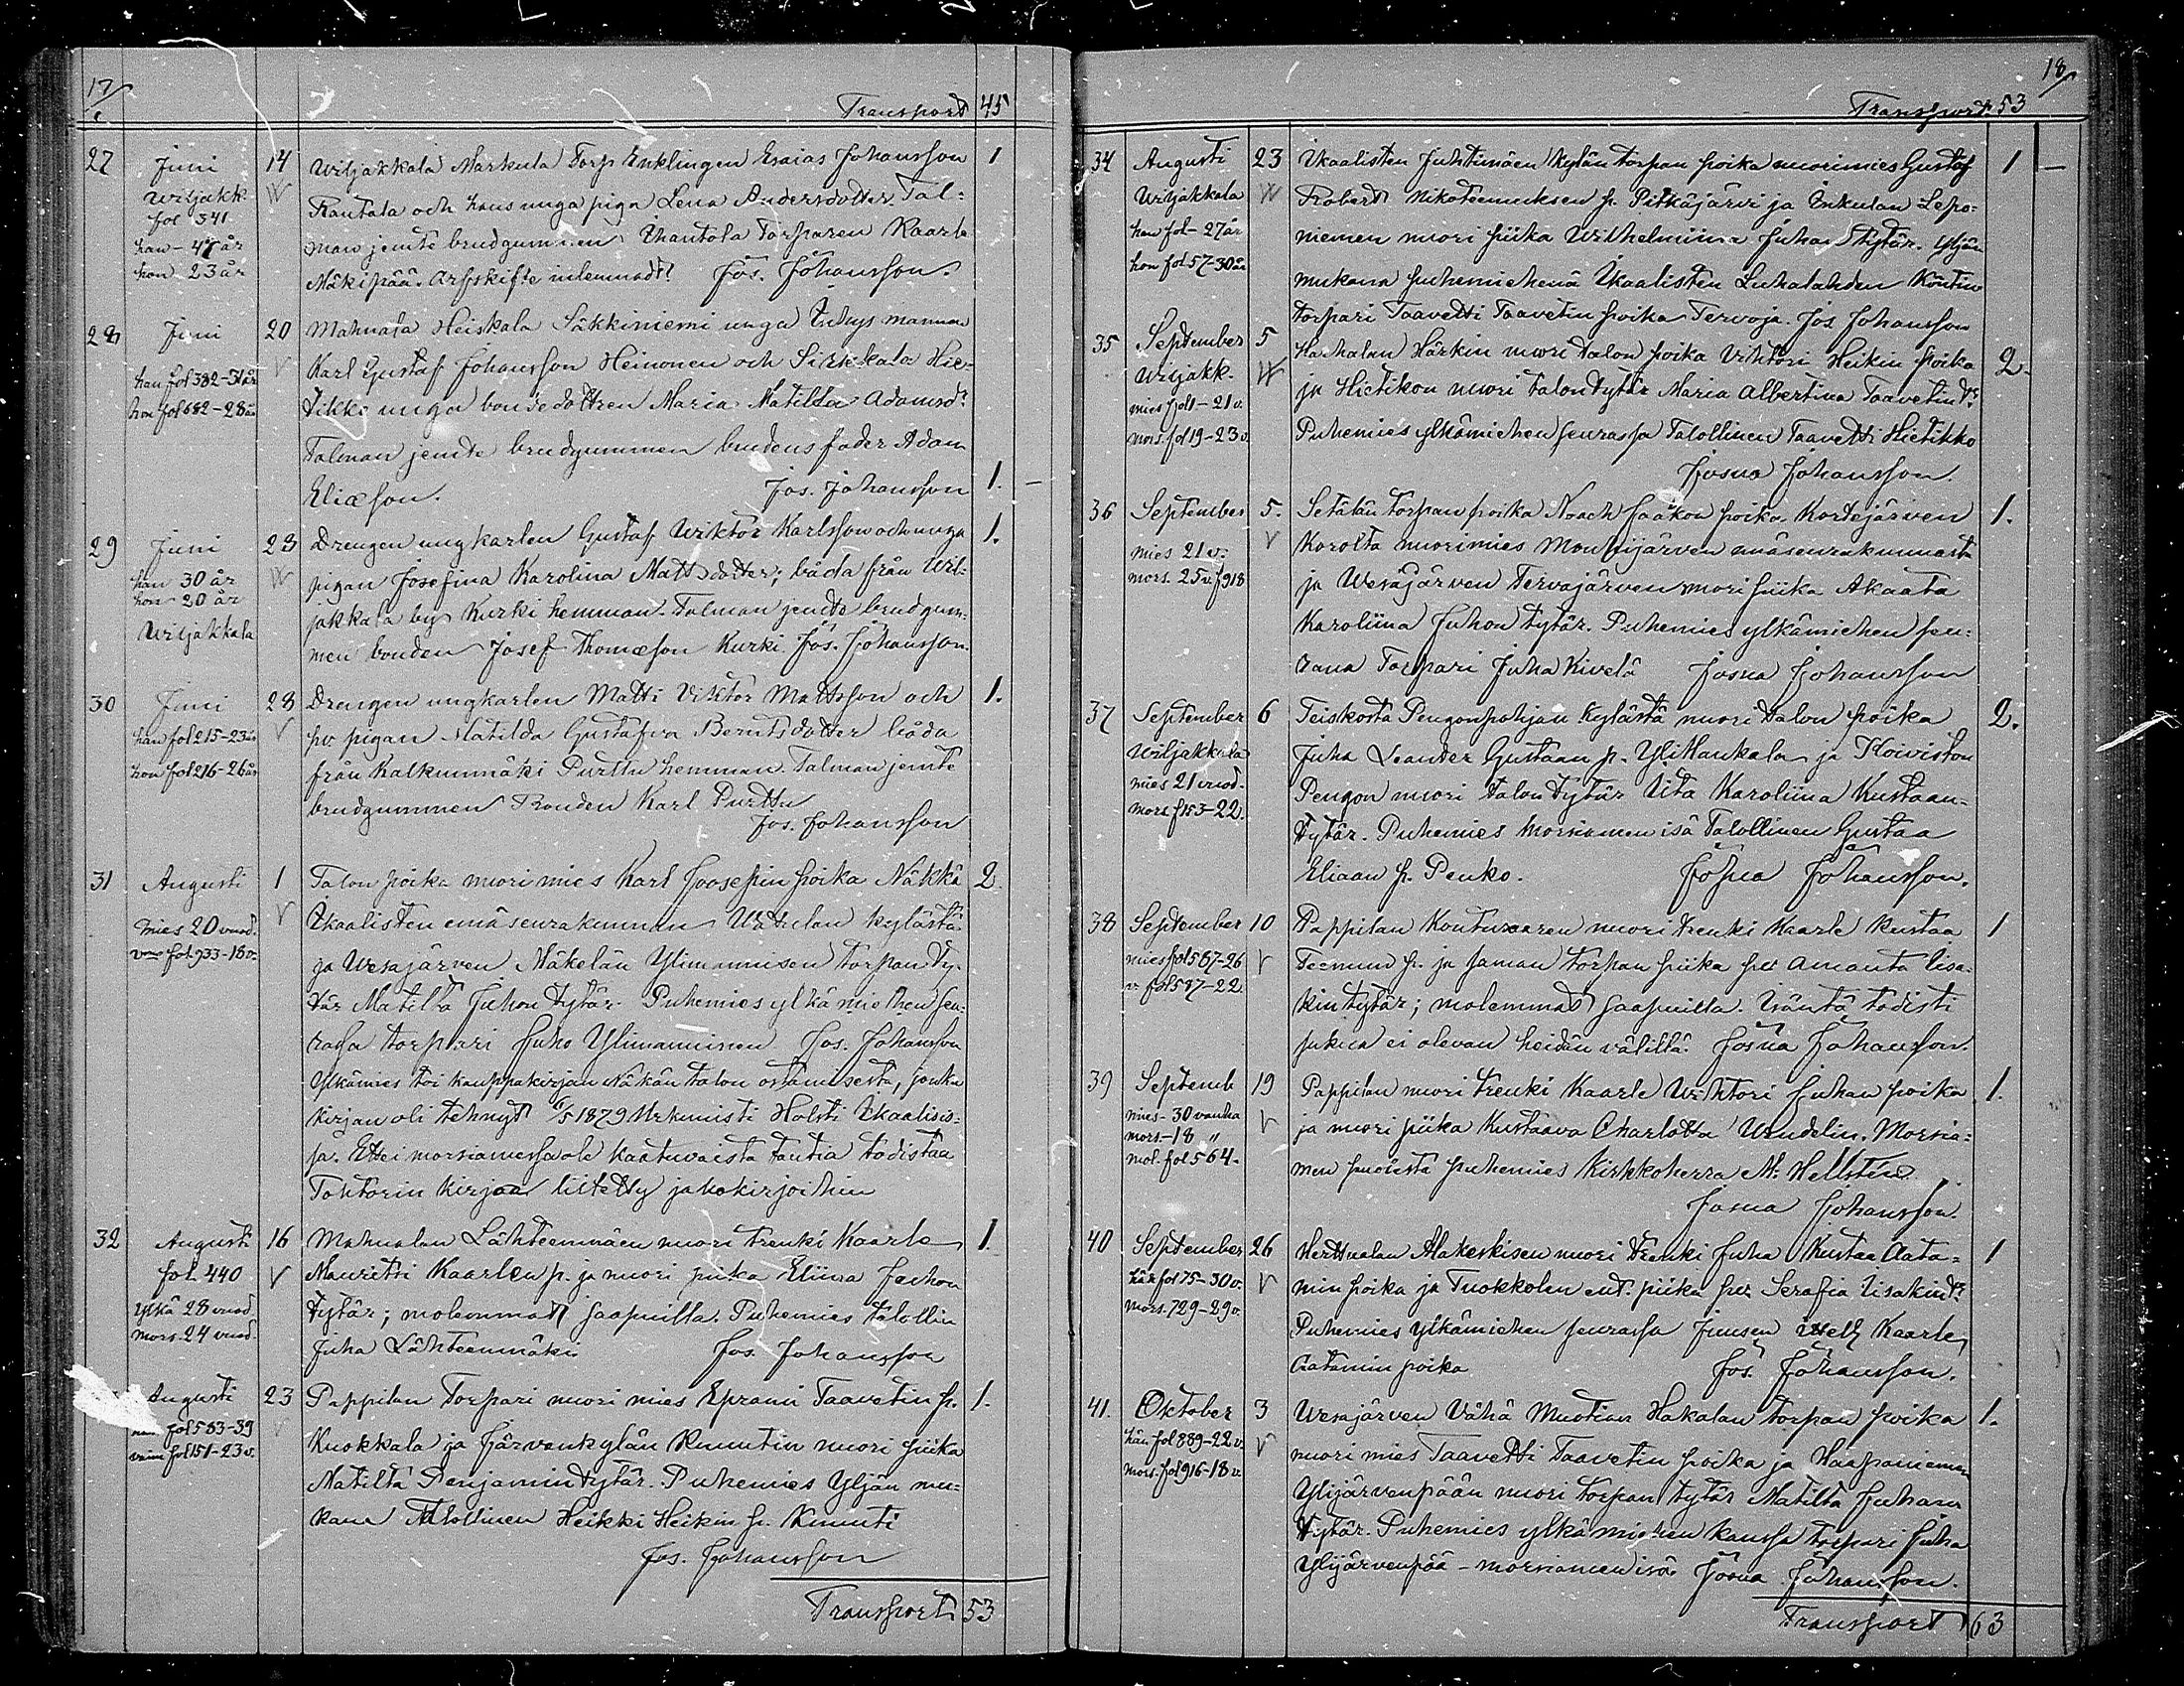 17
Transport 45
27 Juni 14 Wiljakkala Markula Torp Enklingen Esaias Johansson 1
Wiljakk. Rantala och hans unga piga Lena Andersdotter. Tal-
fol 341
han - 47 år man jemte brudgummen Uhantola Torparen Kaarle
hon 23 år Mäkipää. Arfskifte inlemnadt? Jos. Johansson.
28 Juni 20 Mahnala Heiskala Säkkiniemi unga
han fol 382-31 år Karl Gustaf Johansson Heinonen och Sirkkala Hie-
hon fol 682-28 år tikko unga bondedottren Maria Matilda Adamsd:r
Talman jemte brudgummen brudens fader Adam
Eliæson. Jos. Johansson 1. —
29 Juni 23 Drengen ungkarlen Gustaf Wiktor Karlsson och unga 1.
han 30 år pigan Josefina Karolina Mattsdotter; båda från Wil-
hon 20 år jakkala by Kurki hemman. Talman jemte brudgum-
Wiljakkala men bonden Josef Thomæson Kurki. Jos. Johansson.
30 Juni 28 Drengen ungkarlen Matti Viktor Mattsson och 1.
han fol 215-23 år pv. pigan Matilda Gustafva Berntsdotter båda
hon fol 216-26 år från Kalkunmäki Purttu hemman. Talman jemte
brudgummen Bonden Karl Purttu
Jos. Johansson
31 Augusti 1 Talon poika nuori mies Karl Joosepin poika Näkkä 2.
mies 20 vuod. Ikaalisten emäseurakunnan Vatulan kylästä
fol. 933-18 v. ja Wesajärven Mäkelän Ylimannisen torpan ty-
tär Matilta Juhon tytär. Puhemies ylkämiehen seu-
rassa torpari Juho Ylimanninen Jos. Johansson
Ylkämies toi kauppakirjan Näkän talon ostamisesta, jonka
kirjan oli tehnyt 6/5 1879 Urkunisti Holsti Ikaalisis-
sa. Ettei morsiamessa ole kaatuvaista tautia todistaa
Tohtorin kirjaa liitetty jakokirjoihin
32 Augusti 16 Mahnalan Lähteenmäen nuori trenki Kaarle 1.
fol. 440 Mauritsi Kaarlen p. ja nuori piika Eliina Juhon
Ylkä 28 vuod. tytär; molemmat saapuilla. Puhemies talollin
mors. 24 vuod. Juha Lähteenmäki Jos. Johansson
Augusti 23 Pappilan Torpari nuori mies Eprami Taavetin p. 1.
fol 583-39 Kuokkala ja Järvenkylän Knuutin nuori piika
fol 151-23 v. Matilta Penjamin tytär. Puhemies Yljän mu-
kana Talollinen Heikki Heikin p. Knuuti
Jos. Johansson
Transport 53
18
Transport 53
34 Augusti 23 Ikaalisten Juhtimäen kylän torpan poika nuorimies Gustaf 1 —
Wiljakkala Robert Nikoteemuksen p. Pitkäjärvi ja Inkulan Lepo-
han fol - 27 år niemen nuori piika Wilhelmiina Juhan tytär. Yljän
hon fol 57-30 år mukana puhemiehenä Ikaalisten Luhalahden Köntin
torpari Taavetti Taavetin poika Tervoja. Jos Johansson
35 September 5 Hachalan Härkin nuori talon poika Vihtori Heikin poika 2.
Wiljakk. ja Hietikon nuori talon tytär Maria Albertina Taavetin t:r
mies fol 1-21 v. Puhemies ylkämiehen seurassa Talollinen Taavetti Hietikko
mors. fol 19-23 v. Josua Johansson.
36 September 5. Setälän torpan poika Noach Jaakon poika Kortejärven 1.
mies 21 v. Korolta nuorimies Mouhijärven emäseurakunnasta
mors. 25 v. f 918 ja Wesajärven Tervajärven nuori piika Akaata
Karoliina Juhon tytär. Puhemies ylkämiehen seu-
rana Torpari Juha Kivelä Josua Johansson
37 September 6 Teiskosta Pengonpohjan kylästä nuori talon poika 2.
Wiljakkala Juha Leander Gustaan p. Yli Haukala ja Koiviston
mies 21 vuod. Pengon nuori talon tytär Iita Karoliina Kustaan-
mors. f 153-22. tytär. Puhemies Morsiamen isä Talollinen Gustaa
Eliaan p. Penko. Josua Johansson.
38 September 10 Pappilan Kontuvaaren nuori trenki Kaarle Kustaa 1
mies fol 567-26 p. ja saman torpan piika pv. Amanta Iisa-
v. fol 587-22. kin tytär; molemmat saapuilla. Isäntä todisti
sukua ei olevan heidän välillä. Josua Johansson.
39 Septemb 19 Pappilan nuori trenki Kaarle Wihtori Juhan poika 1.
mies - 30 vanha ja nuori piika Kustaava Charlotta Wendelin. Morsia-
mors. - 18 "
mol. fol 564. men puolesta puhemies Kirkkoherra M. Hellsten.
Josua Johansson.
40 September 26 Herttualan Alakeskisen nuori trenki Juha Kustaa Aata- 1
hän fol 75-30 v. min poika ja Tuokkolan ent. piika pv. Serafia Iisakin t:r
mors. 729-29 v. Puhemies ylkämiehen seurassa Juusen veli Kaarle
Aatamin poika Jos. Johansson.
41. Oktober 3 Wesajärven Vähä Muotian Hakalan torpan poika 1.
hän fol 889-22 v. nuori mies Taavetti Taavetin poika ja Haapaniemen
mors. fol 916-18 v. Ylijärvenpään nuori torpan tytär Matilta Juhan
tytär. Puhemies ylkämiehen kanssa torpari Juha
Ylijärvenpää - morsiamen isä Josua Johansson.
Transport 63